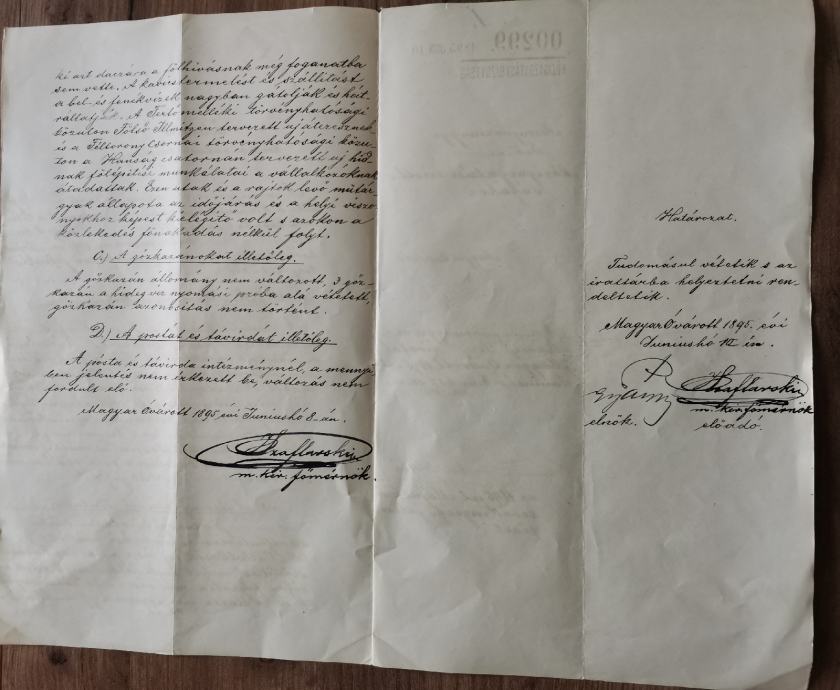 ki azt daczára a fölhivásnak még foganatba
sem vette. A kavicstermelést és szállitást
a bel- és fenékvizek nagyban gátolják és hát-
rállatják. A Fertőmelléki törvényhatósági
közúton Felső Illmitzen tervezett uj áteresznek
és a Féltorony Csornai törvényhatósági közu-
ton a Hanság csatornán tervezett uj hid-
nak fölépitési munkálatai a vállalkozóknak
átadattak. Ezen utak és a rajtok levő műtár-
gyak állapota az időjárás és a helyi viszo-
nyokhoz képest kielégitő volt s azokon a
közlekedés fönakadás nélkül folyt.
C.) A gőzkazánokat illetőleg.
A gőzkazán állomány nem változott, 3 gőz-
kazán a hideg viz nyomási próba alá vétetett,
gőzkazán azonositás nem történt.
D.) A postát és távirdát illetőleg.
A pósta és távirda intézménynél, a mennyi-
ben jelentés nem érkezett be, változás nem
fordult elő.
Magyar Óvárott 1895 évi Juniushó 8-án.
Szaflarski
m. kir. főmérnök.
00299
Határozat.
Tudomásul vétetik s az
irattárba helyeztetni ren-
deltetik.
Magyar Óvárott 1895. évi
Juniushó 12 én.
elnök.
Szaflarski
m. kir. főmérnök
előadó.